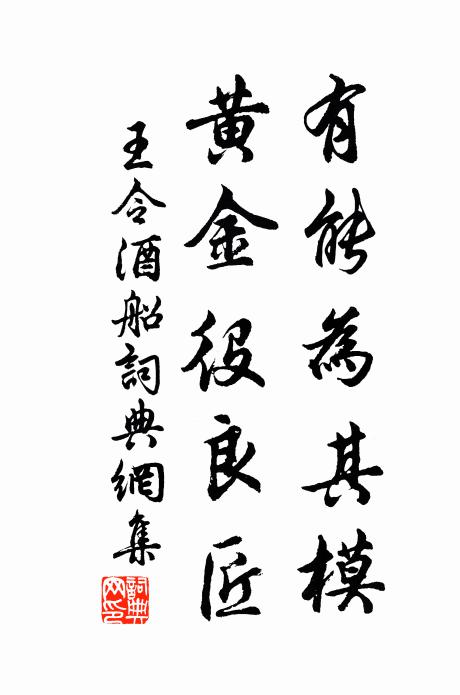 有能為其模
黃金役良匠
王令酒船詞典網集
詞典網印